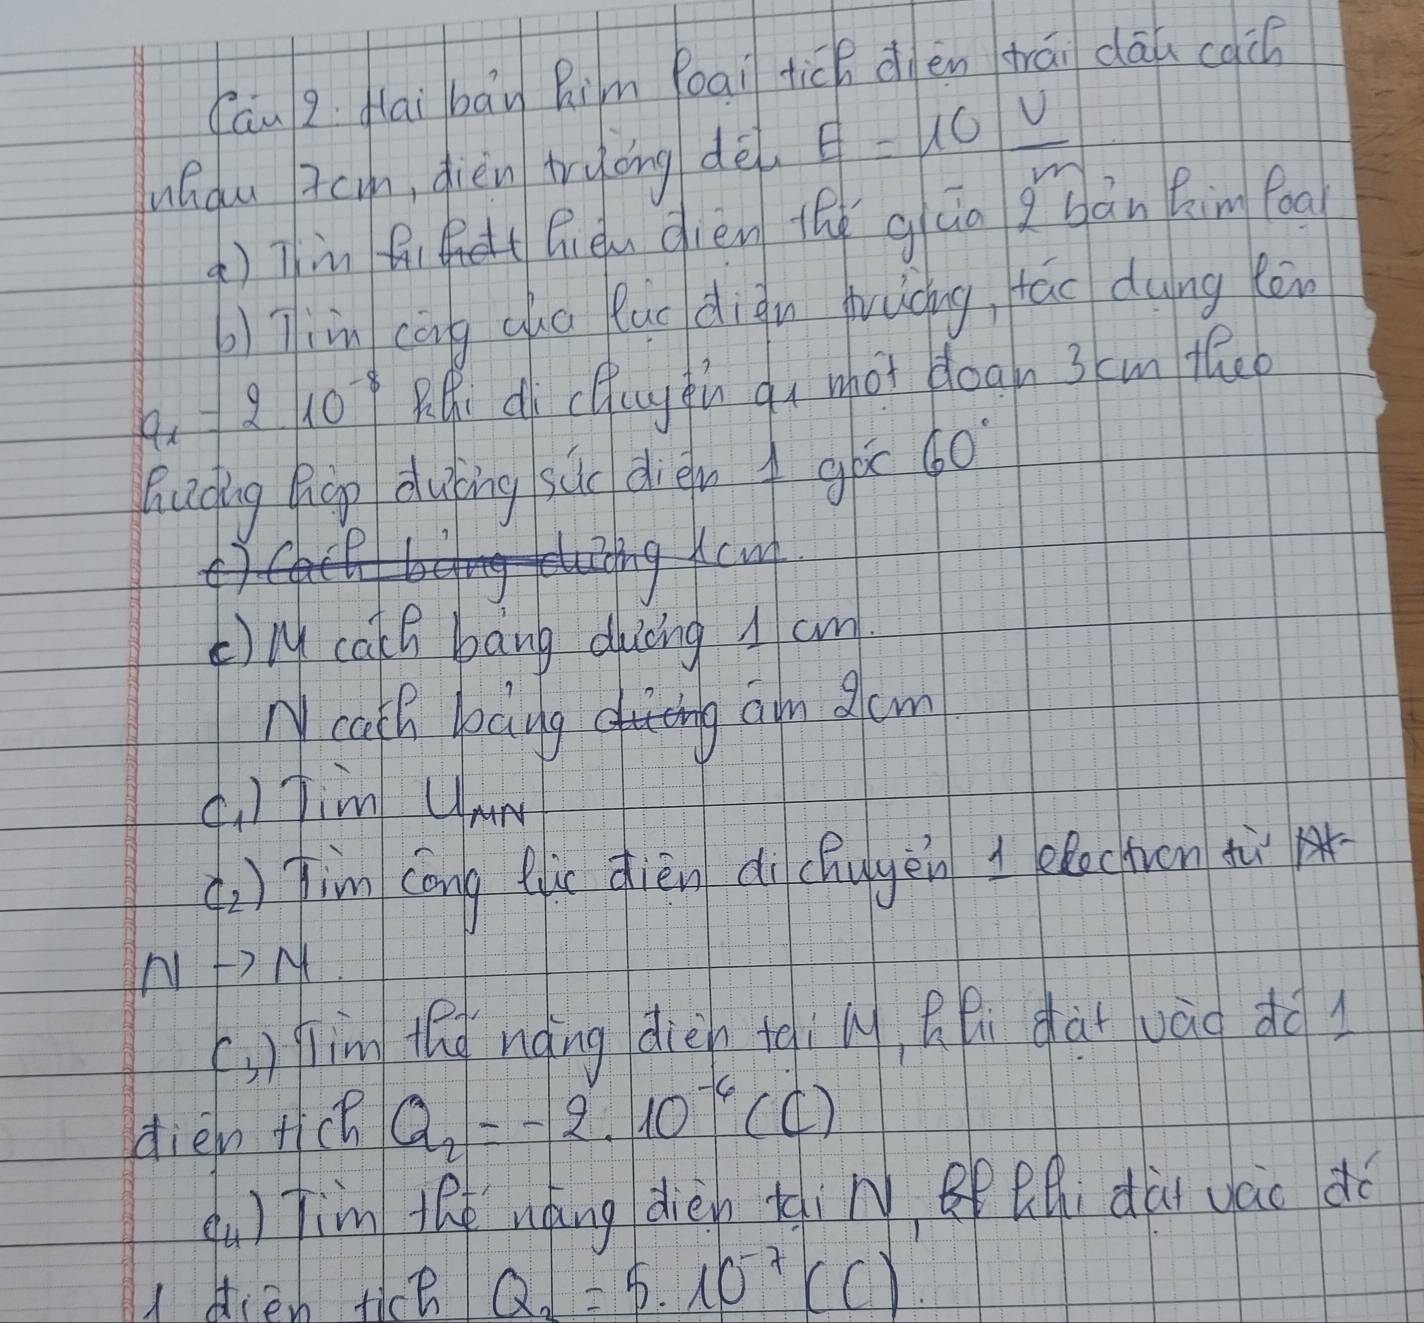 Câu 2. Hai bản kim loại tích điện trái dấu cách
nhau 7cm, điện trường đều E = 10 V/m
a) Tìm hiệu điện thế giữa 2 bản kim loại
b) Tìm công của lực điện trường, tác dụng lên
q₁ = 2.10⁻⁸ khi di chuyển q₁ một đoạn 3cm theo
hướng hợp đường sức điện 1 góc 60°
c) Cách bảng dương 1cm.
c) M cách bảng dương 1 cm.
N cách bảng dương âm 2cm
c₁) Tìm U_MN
c₂) Tìm công lực điện di chuyển 1 electron từ
N → M.
c₃) Tìm thế năng điện tại M, khi đặt vào đó 1
điện tích Q₂ = -2.10⁻⁶ (C)
c₄) Tìm thế năng điện tại N, khi đặt vào đó
1 điện tích Q₂ = 5.10⁻⁷ (C).